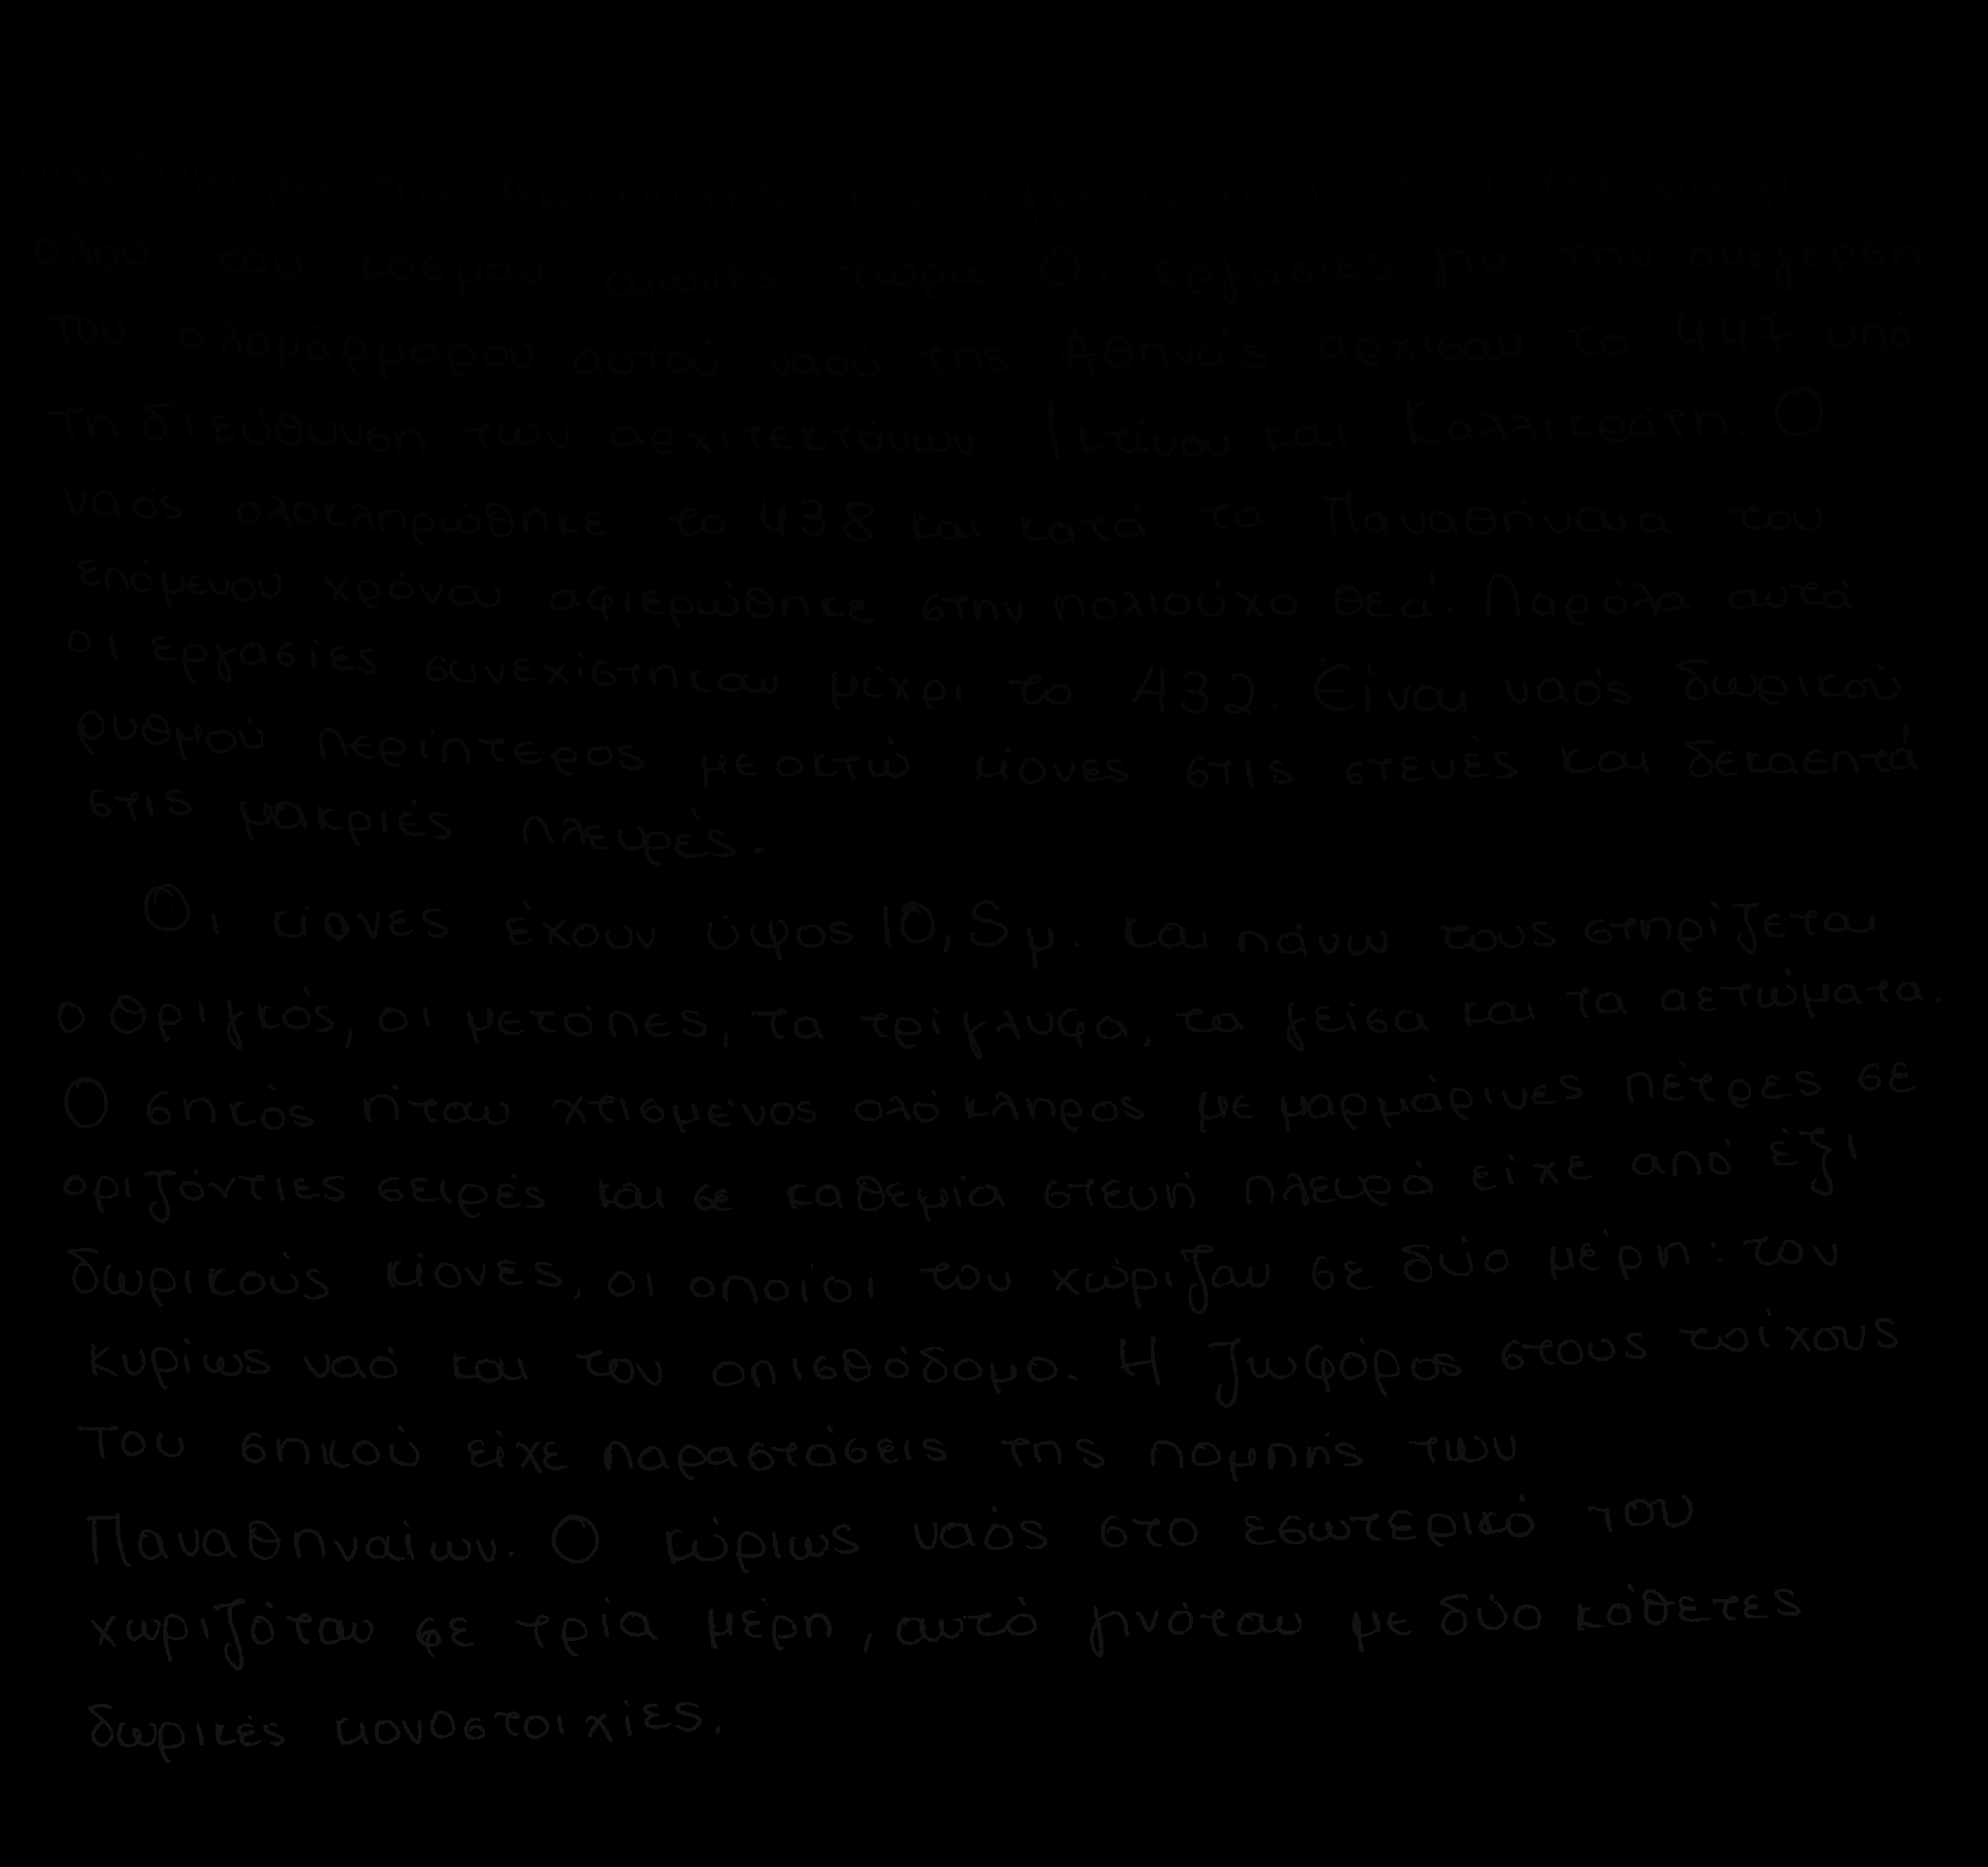 οικοδόμημα της Ακρόπολης και συγκευτρώνει τον θαυμασμό
όλου του κόσμου αιώνες τώρα. Οι εργασίες για την ανέγερση
του ολομάρμαρου αυτού ναού της Αθηνάς άρχισαν το 447 υπό
τη διεύθύνση των αρχιτεκτόνων Ικτίνου και Καλλικράτη. Ο
ναός ολοκληρώθηκε το 438 και κατά τα Παναθήναια του
επόμενου χρόνου αφιερώθηκε στην πολιούχο θεά. Παρόλα αυτά
οι εργασίες συνεχίστηκαν μέχρι το 432. Είναι ναός δωρικού
ρυθμού περίπτερος με οκτώ κίονες στις στενές και δεκαεπτά
στις μακριές πλευρές.
Οι κίονες έχουν ύψος 10,5 μ. και πάνω τους στηρίζεται
ο θριγκός, οι μετόπες, τα τρίγλυφα, τα γείσα και τα αετώματα.
Ο σηκός ήταν χτισμένος ολόκληρος με μαρμάρινες πέτρες σε
οριζόντιες σειρές και σε καθεμία στενή πλευρά είχε από έξι
δωρικούς κίονες, οι οποίοι τον χώριζαν σε δύο μέρη: τον
κυρίως ναό και τον οπισθόδομο. Η ζωφόρος στους τοίχους
του σηκού είχε παραστάσεις της πομπής των
Παναθηναίων. Ο κύριως ναός στο εσωτερικό του
χωριζόταν σε τρία μέρη, αυτό γινόταν με δύο κάθετες
δωρικές κιονοστοιχίες.